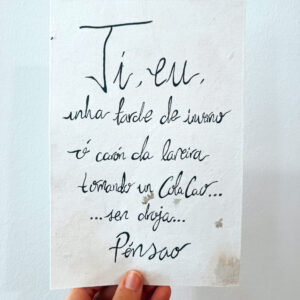 Ti, eu,
unha tarde de inverno
ó carón da lareira
tomando un ColaCao...
...sen droja...
Pénsao